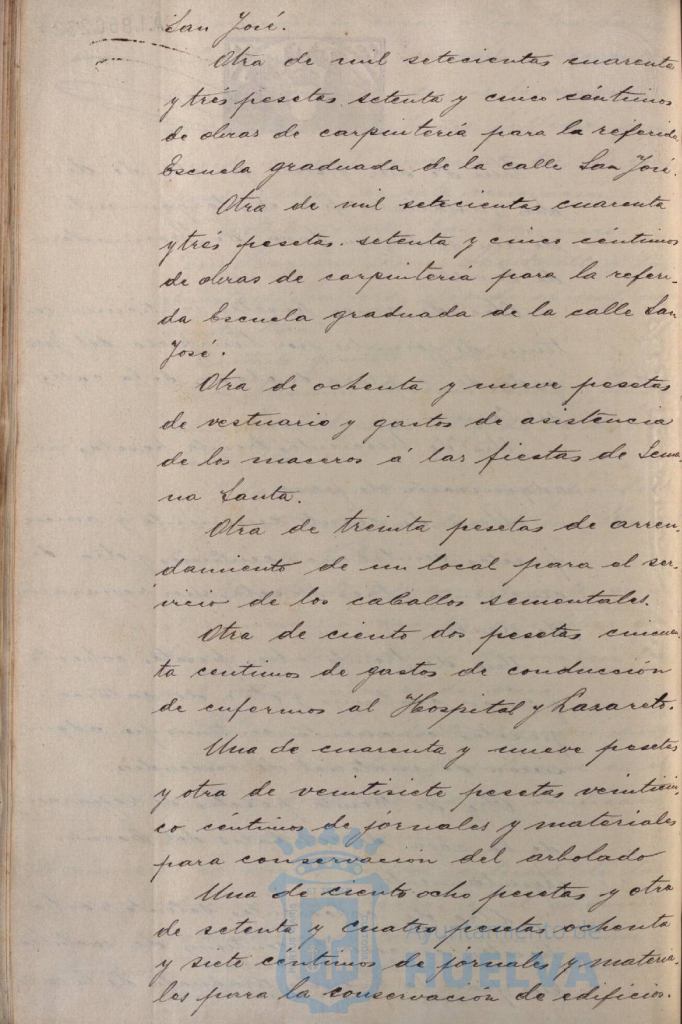 San José.
Otra de mil setecientas cuarenta
y tres pesetas setenta y cinco céntimos
de obras de carpintería para la referida
Escuela graduada de la calle San José.
Otra de mil setecientas cuarenta
y tres pesetas setenta y cinco céntimos
de obras de carpintería para la referi-
da Escuela graduada de la calle San
José.
Otra de ochenta y nueve pesetas
de vestuario y gastos de asistencia
de los maceros á las fiestas de Sema-
na Santa.
Otra de treinta pesetas de arren-
damiento de un local para el ser-
vicio de los caballos sementales.
Otra de ciento dos pesetas cincuen-
ta centimos de gastos de conducción
de enfermos al Hospital y Lazareto.
Una de cuarenta y nueve pesetas
y otra de veintisiete pesetas veinticin-
co céntimos de jornales y materiales
para conservación del arbolado
Una de ciento ocho pesetas y otra
de setenta y cuatro pesetas ochenta
y siete céntimos de jornales y materia-
les para la conservación de edificios.
Ayuntamiento de
HUELVA